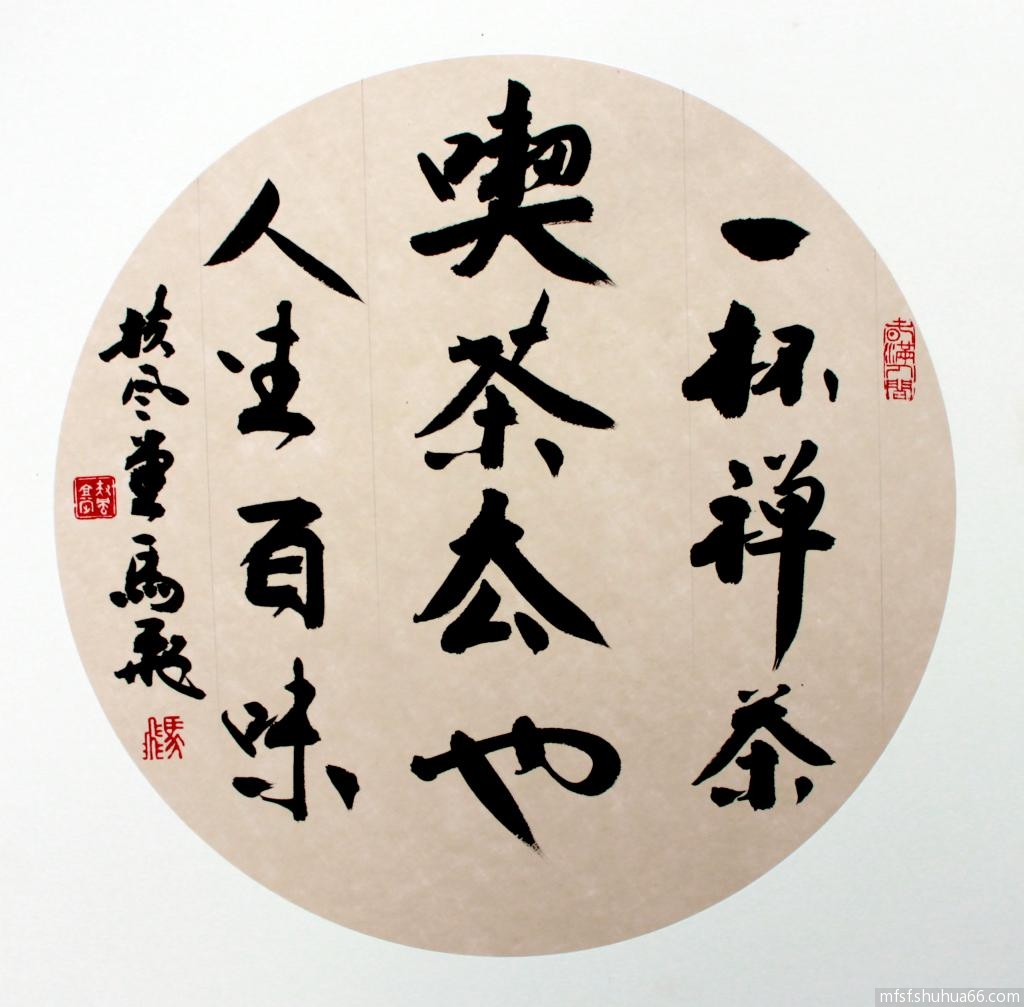 一杯禅茶
喫茶去也
人生百味
扶风堂馬飛
馬飛
mfsf.shuhua66.com